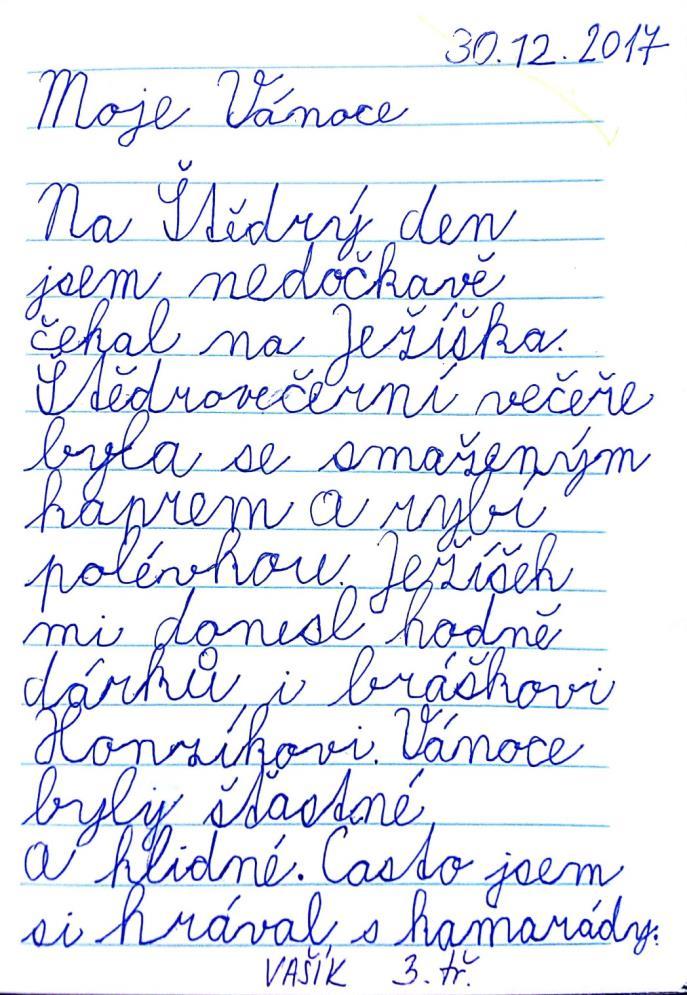 30.12.2017
Moje Vánoce
Na Štědrý den
jsem nedočkavě
čekal na Ježíška.
Štědrovečerní večeře
byla se smaženým
kaprem a rybí
polévkou. Ježíšek
mi donesl hodně
dárků i bráškovi
Honzíkovi. Vánoce
byly šťastné
a klidné. Casto jsem
si hrával s kamarády.
VAŠÍK 3. tř.